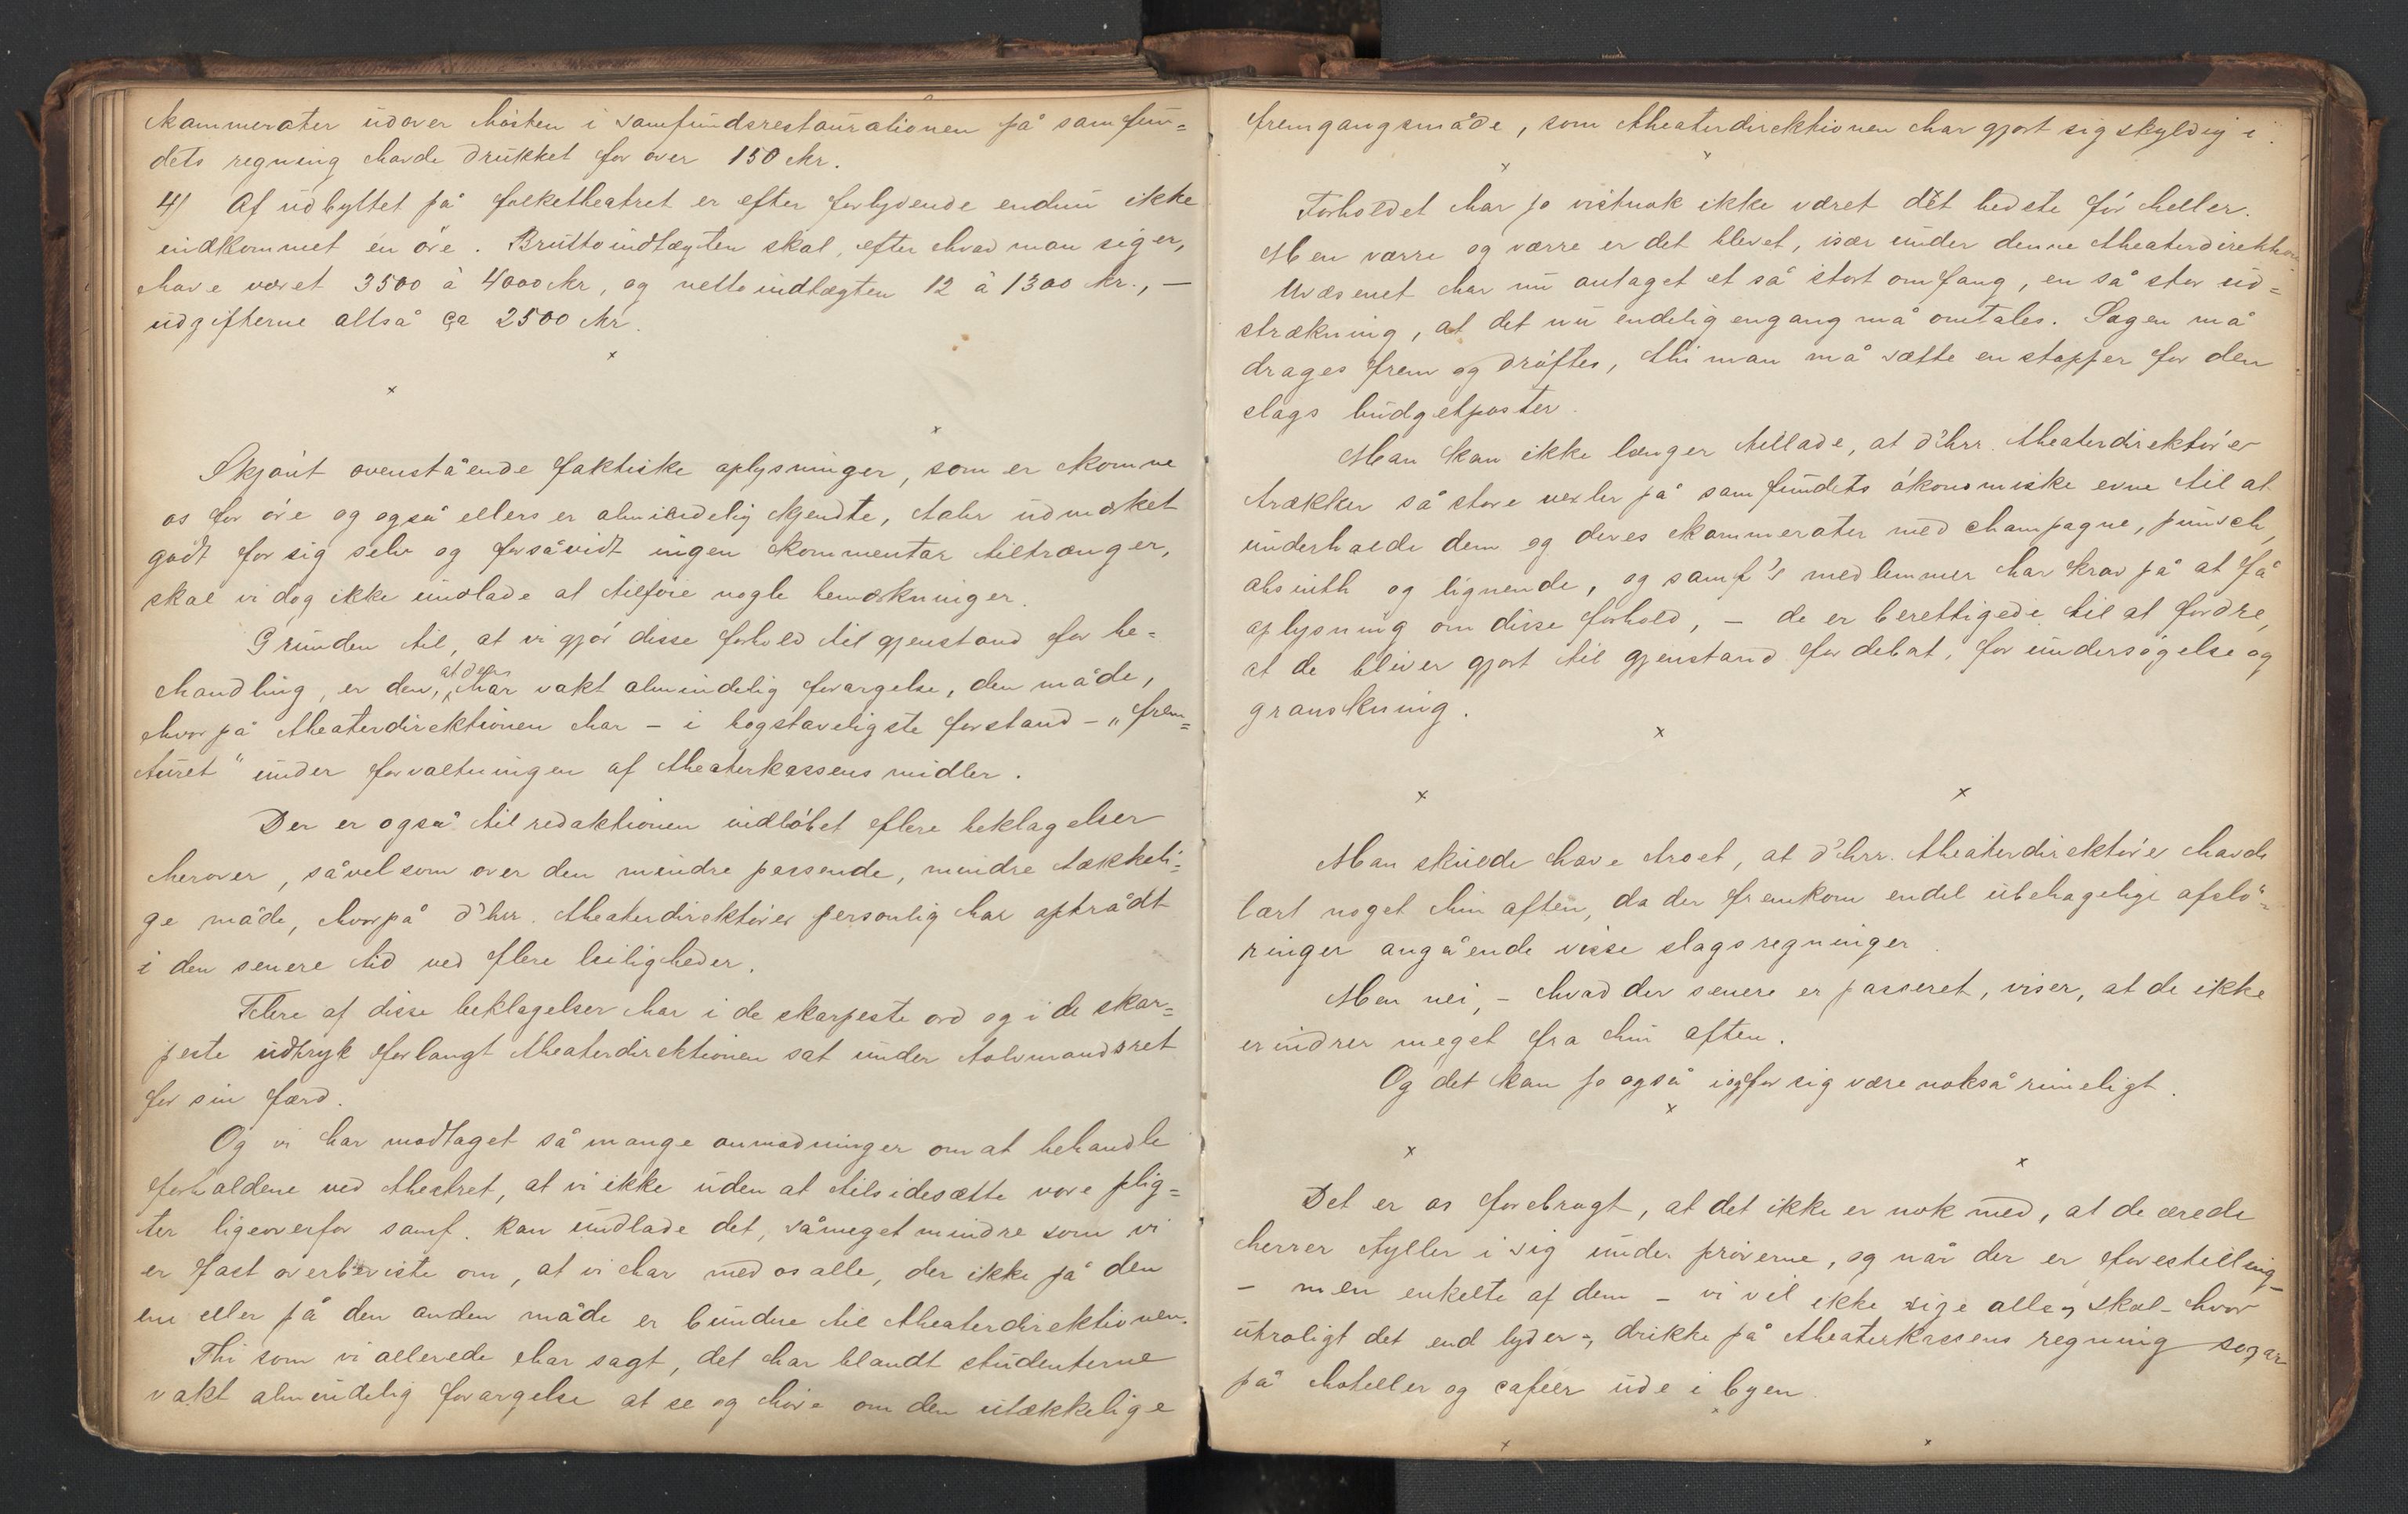 kammerater udover høsten i samfundsrestaurationen på samfun=
dets regning havde drukket for over 150 kr.
4) Af udbyttet på folketheatret er efter forlydende endnu ikke
indkommet én øre. Bruttoindtægten skal, efter hvad man siger,
have været 3500 à 4000 kr, og nettoindtægten 12 à 1300 kr., —
udgifterne altså ca 2500 kr.
x
x
x
Skjønt ovenstående faktiske oplysninger, som er komne
os for øre og også ellers er almindelig kjendte, taler udmærket
godt for sig selv og forsåvidt ingen kommentar tiltrænger,
skal vi dog ikke undlade at tilføie nogle bemærkninger.
Grunden til, at vi gjør disse forhold til gjenstand for be=
handling, er den, at den har vakt almindelig forargelse, den måde,
hvorpå theaterdirektionen har – i bogstaveligste forstand – „frem=
turet" under forvaltningen af theaterkassens midler.
Der er også til redaktionen indløbet flere beklagelser
herover, såvel som over den mindre passende, mindre tækkeli=
ge måde, hvorpå d'hrr. theaterdirektører personlig har optrådt
i den senere tid ved flere leiligheder.
Flere af disse beklagelser har i de skarpeste ord og i de skar=
peste udtryk forlangt theaterdirektionen sat under tolvmandsret
for sin færd.
Og vi har modtaget så mange anmodninger om at behandle
forholdene ved theatret, at vi ikke uden at tilsidesætte vore plig=
ter ligeoverfor samf. kan undlade det, såmeget mindre som vi
er fast overbeviste om, at vi har med os alle, der ikke på den
ene eller på den anden måde er bundne til theaterdirektionen.
Thi som vi allerede har sagt, det har blandt studenterne
vakt almindelig forargelse at se og høre om den utækkelige
fremgangsmåde, som theaterdirektionen har gjort sig skyldig i.
x x
x
Forholdet har jo vistnok ikke været det bedste før heller.
Men værre og værre er det blevet, især under denne theaterdirektion.
Uvæsenet har nu antaget et så stort omfang, en så stor ud=
strækning, at det nu endelig engang må omtales. Sagen må
drages frem og drøftes, thi man må sætte en stopper for den
slags budgetposter.
Man kan ikke længer tillade, at d'hrr. theaterdirektører
trækker så store vexler på samfundets økonomiske evne til at
underholde dem og deres kammerater med champagne, punsch,
absinth og lignende, og samf's medlemmer har krav på at få
oplysning om disse forhold, – de er berettigede til at fordre,
at de bliver gjort til gjenstand for debat, for undersøgelse og
granskning.
x
x x
Man skulde have troet, at d'hrr. theaterdirektører havde
lært noget hin aften, da der fremkom endel ubehagelige afslø=
ringer angående visse slags regninger.
Men nei, – hvad der senere er passeret, viser, at de ikke
erindrer meget fra hin aften.
Og det kan jo også i og for sig være nokså rimeligt.
x
x
x
Det er os forebragt, at det ikke er nok med, at de ærede
herrer fyller i sig under prøverne, og når der er forestilling
– men enkelte af dem – vi vil ikke sige alle, skal – hvor
utroligt det end lyder –, drikke på theaterkassens regning sogar
på hoteller og caféer ude i byen.
x
x x